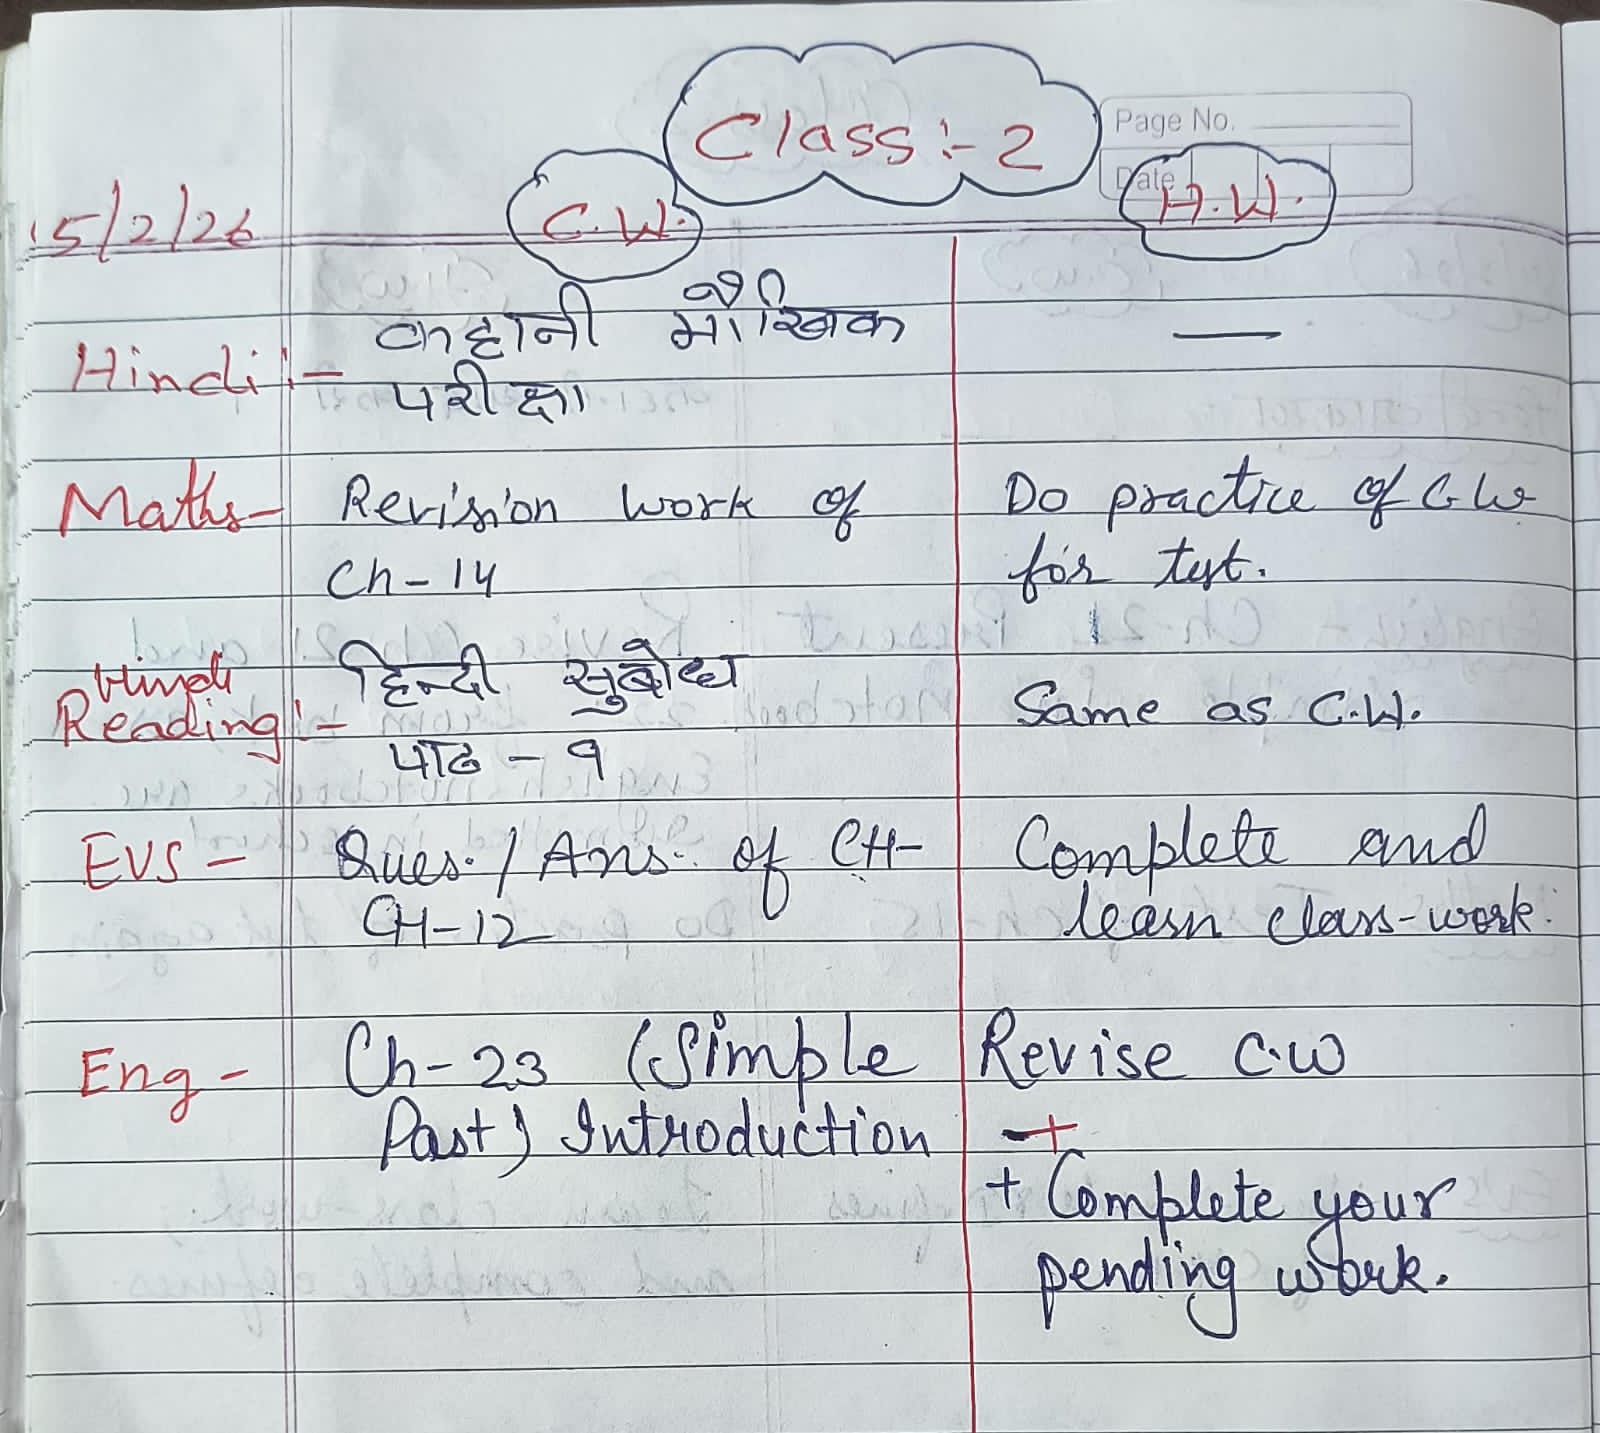 Class :- 2
Page No.
Date
C.W.
H.W.
15/2/26
Hindi :- कहानी मौखिक —
परीक्षा
Maths- Revision work of Do practice of C.W
Ch-14 for test.
Hindi Reading :- हिन्दी सुबोध Same as C.W.
पाठ - 9
EVS - Ques. / Ans. of CH- Complete and
CH-12 learn class-work.
Eng - Ch-23 (Simple Revise C.W
Past) Introduction +
+ Complete your
pending work.